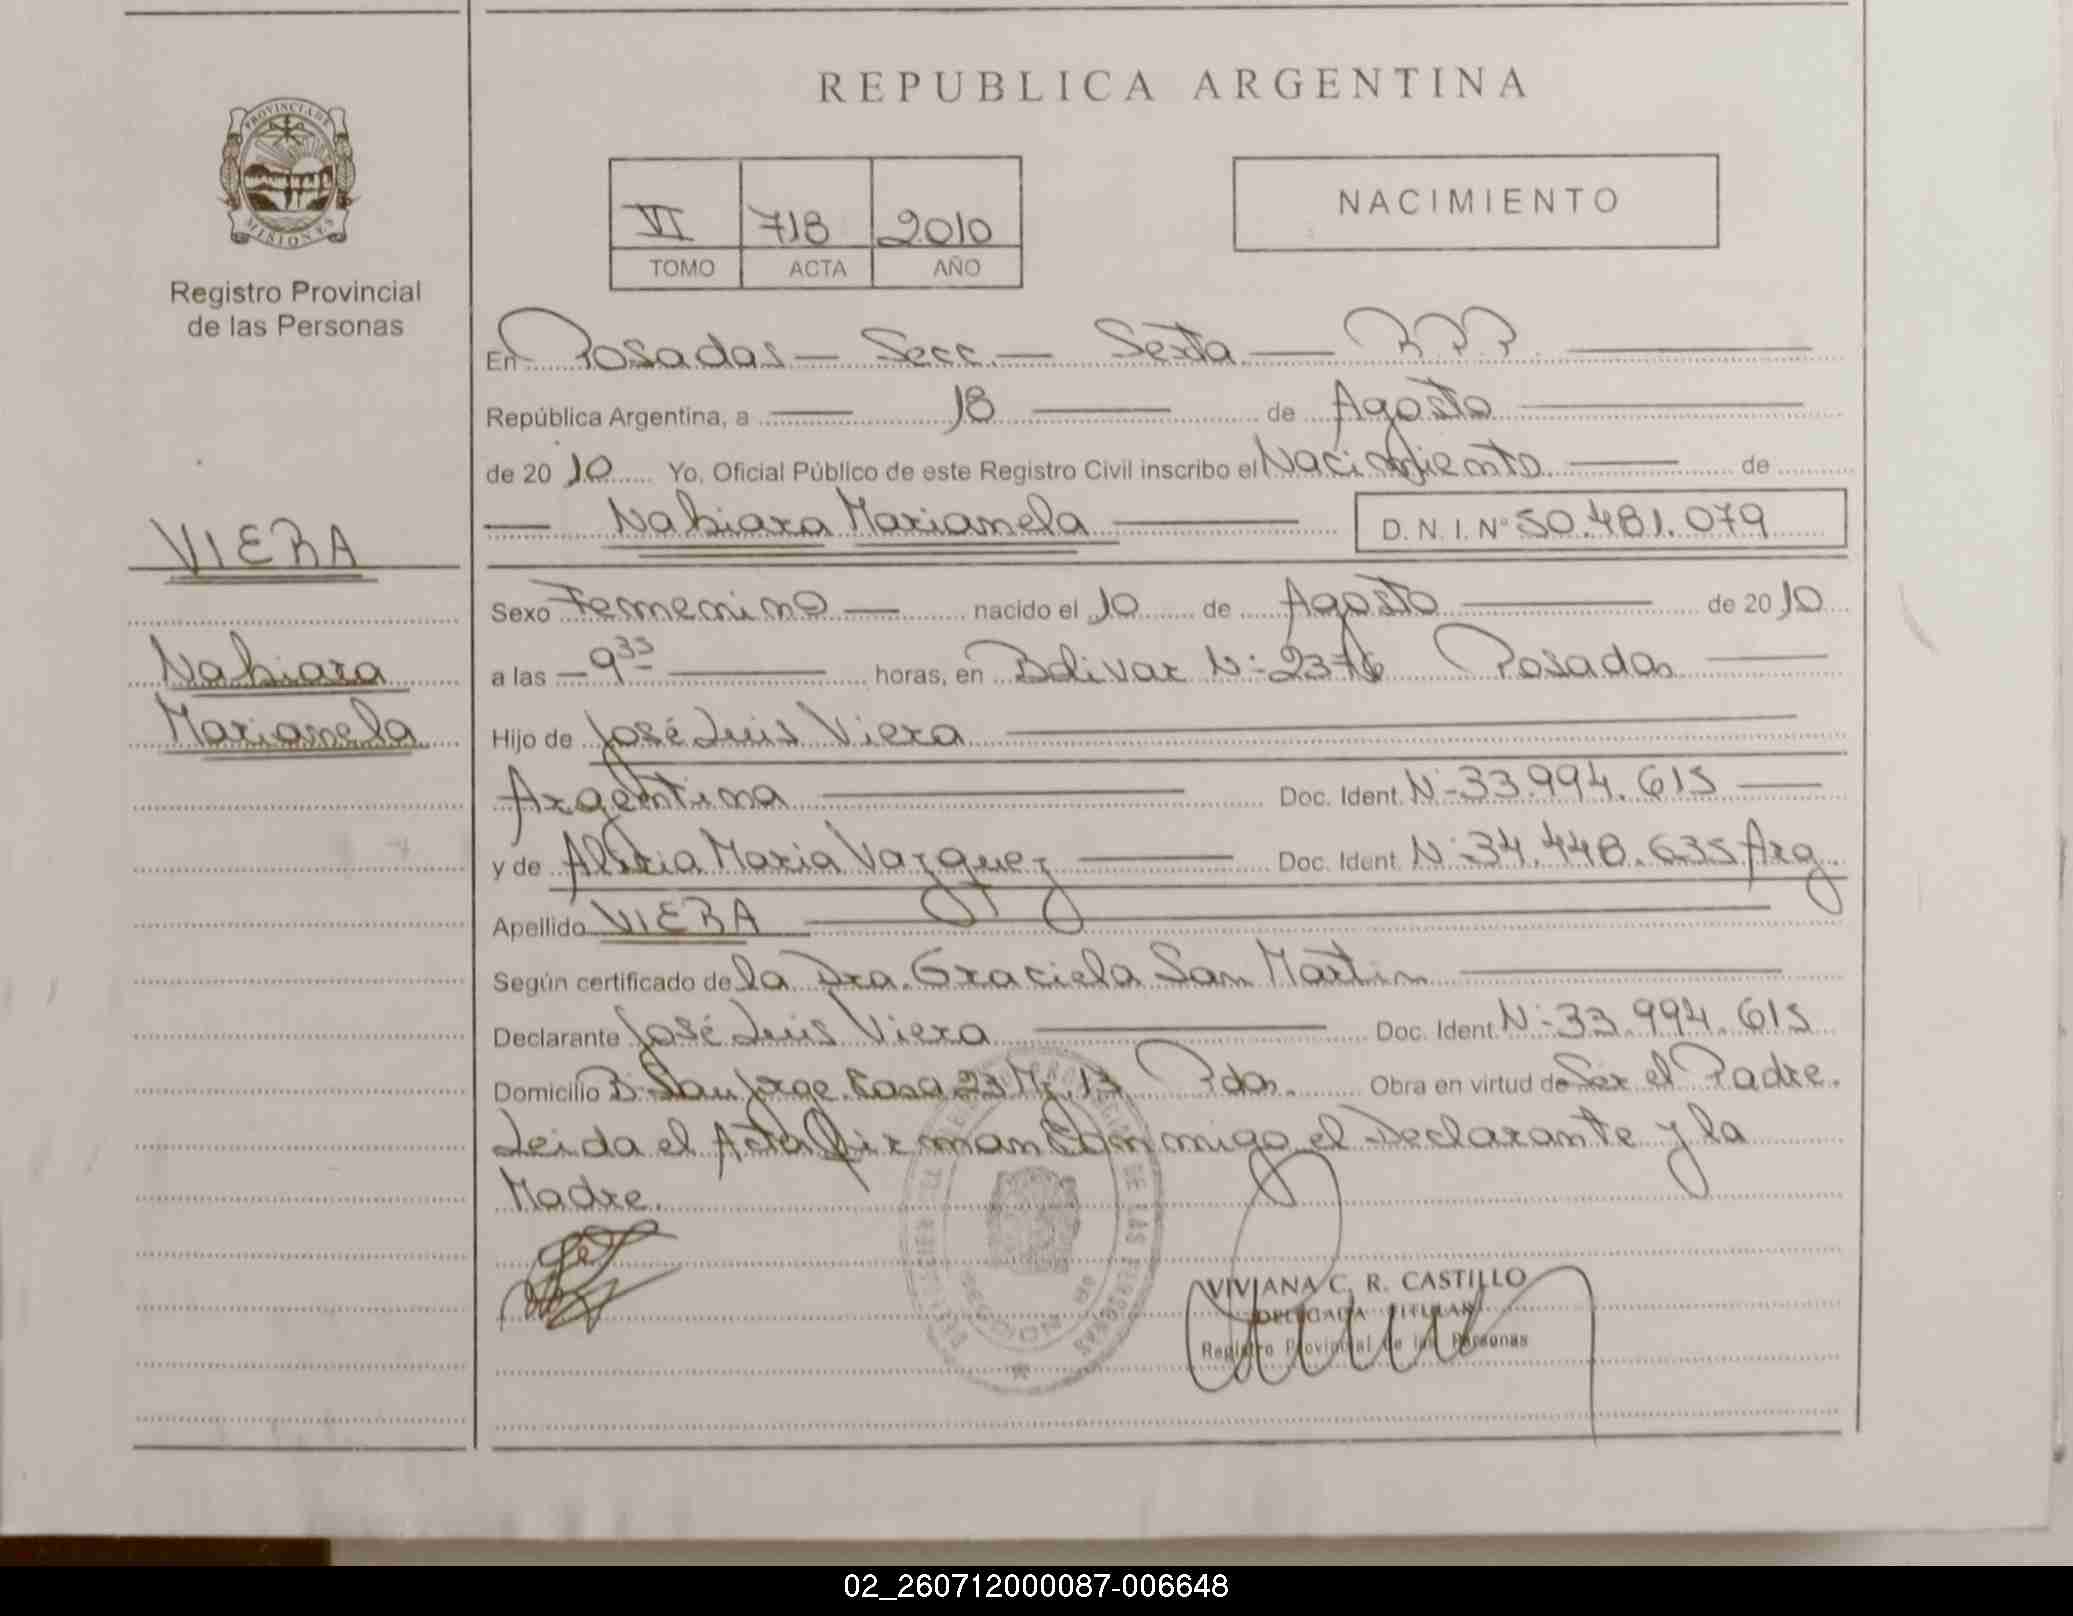 REPUBLICA ARGENTINA
PROVINCIA DE
MISIONES
Registro Provincial
de las Personas
VI 718 2010
TOMO ACTA AÑO
NACIMIENTO
En Posadas — Secc. — Sexta — R.P.P.
República Argentina, a — 18 — de Agosto
de 20 10 Yo, Oficial Público de este Registro Civil inscribo el Nacimiento — de
— Nahiara Marianela — D. N. I. Nº 50.481.079
VIERA
Nahiara
Marianela
Sexo Femenino — nacido el 10 de Agosto — de 20 10
a las — 9 35 — horas, en Bolivar Nº 2376 Posadas
Hijo de José Luis Viera
Argentina — Doc. Ident. Nº 33.994.615
y de Maria Vazquez — Doc. Ident. Nº 34.448.635 Arg.
Apellido VIERA
Según certificado de la Dra. Graciela San Martin
Declarante José Luis Viera — Doc. Ident. Nº 33.994.615
Domicilio Bº San Jorge Casa 23 Mz. 13 Pdas. Obra en virtud de Ser el Padre.
Leida el Acta firman Conmigo el Declarante y la
Madre.
VIVIANA C. R. CASTILLO
DELEGADA TITULAR
Registro Provincial de las Personas
02_260712000087-006648